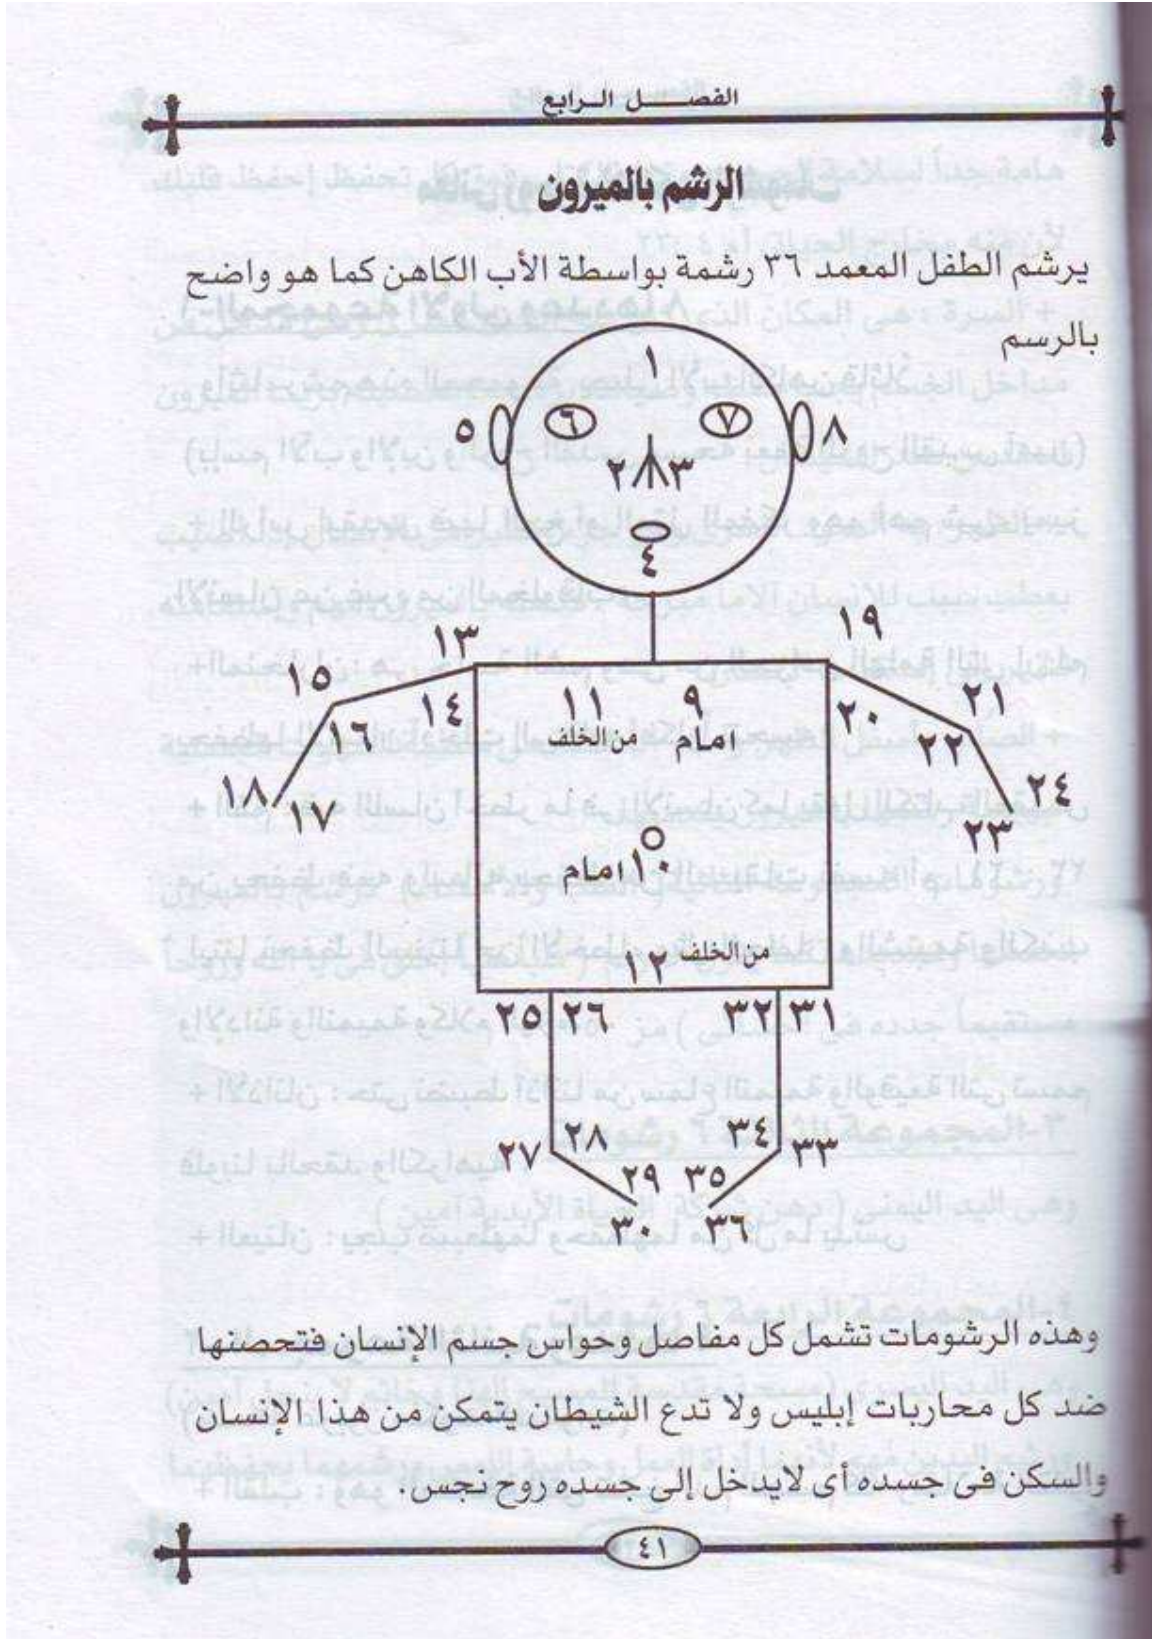 الفصل الرابع
الرشم بالميرون
يرشم الطفل المعمد ٣٦ رشمة بواسطة الأب الكاهن كما هو واضح
بالرسم
١
٥ ٦ ٧ ٨
٢ ٣
٤
١٣ ١٩
١٥ ١٤ ١١ ٩ ٢٠ ٢١
١٦ من الخلف امام ٢٢
١٨ ١٧ ٢٤
٢٣
١٠ امام
١٢ من الخلف
٢٥ ٢٦ ٣٢ ٣١
٢٧ ٢٨ ٣٤ ٣٣
٢٩ ٣٥
٣٠ ٣٦
وهذه الرشومات تشمل كل مفاصل وحواس جسم الإنسان فتحصنها
ضد كل محاربات إبليس ولا تدع الشيطان يتمكن من هذا الإنسان
والسكن فى جسده أى لايدخل إلى جسده روح نجس.
٤١